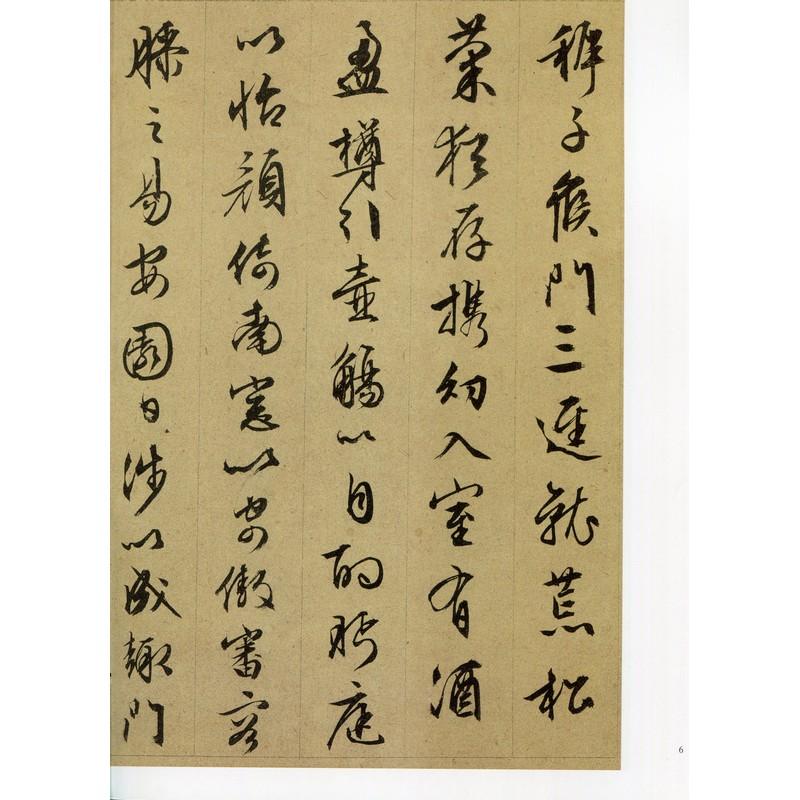 穉子候門三逕就荒松
菊猶存携幼入室有酒
盈樽引壺觴以自酌眄庭
以怡顔倚南窓以寄傲審容
膝之易安園日涉以成趣門
6